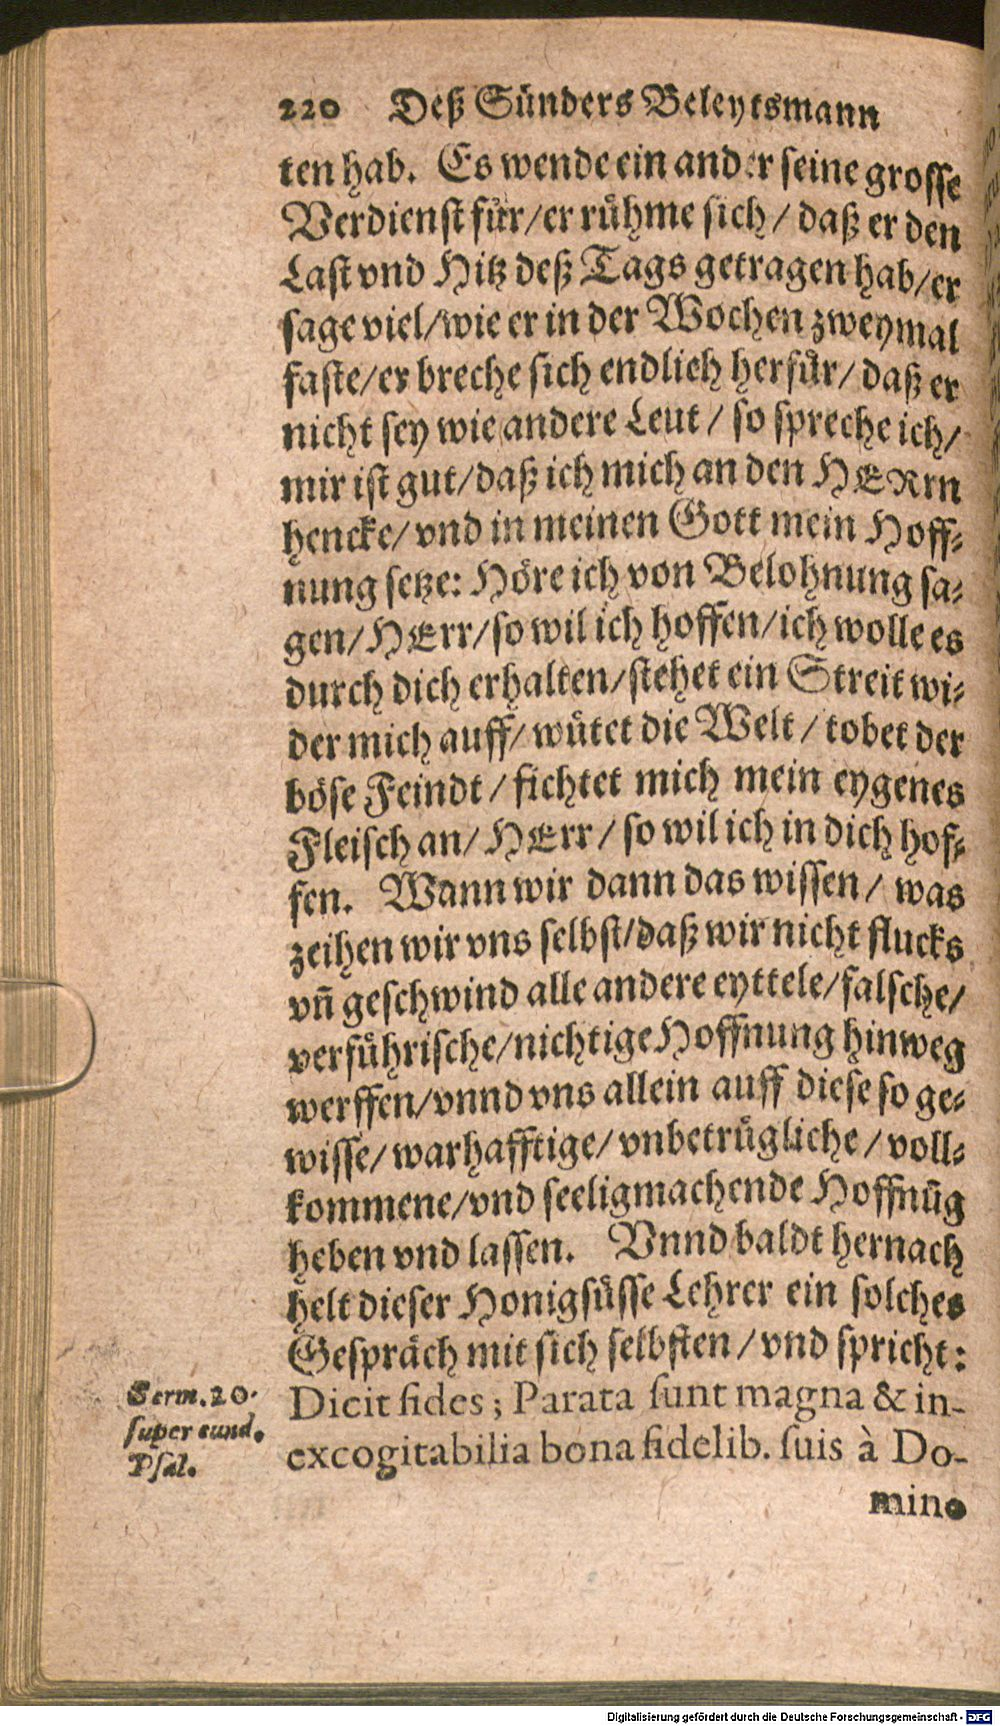 220 Deß Sünders Beleytsmann
ten hab. Es wende ein ander seine grosse
Verdienst für/er rühme sich/ daß er den
Last vnd Hitz deß Tags getragen hab/er
sage viel/wie er in der Wochen zweymal
faste/er breche sich endlich herfür/ daß er
nicht sey wie andere Leut/ so spreche ich/
mir ist gut/daß ich mich an den HERrn
hencke/ vnd in meinen Gott mein Hoff-
nung setze: Höre ich von Belohnung sa-
gen/HErr/so wil ich hoffen/ich wolle es
durch dich erhalten/stehet ein Streit wi-
der mich auff/ wütet die Welt/ tobet der
böse Feindt/ fichtet mich mein eygenes
Fleisch an/ HErr/ so wil ich in dich hof-
fen. Wann wir dann das wissen/ was
zeihen wir vns selbst/daß wir nicht flucks
vñ geschwind alle andere eyttele/falsche/
verführische/nichtige Hoffnung hinweg
werffen/vnnd vns allein auff diese so ge-
wisse/warhafftige/vnbetrügliche/voll-
kommene/vnd seeligmachende Hoffnũg
heben vnd lassen. Vnnd baldt hernach
helt dieser Honigsüsse Lehrer ein solches
Gespräch mit sich selbsten/vnd spricht:
Serm. 20.
super eund.
Psal.
Dicit fides; Parata sunt magna & in-
excogitabilia bona fidelib. suis à Do-
mino
Digitalisierung gefördert durch die Deutsche Forschungsgemeinschaft - DFG